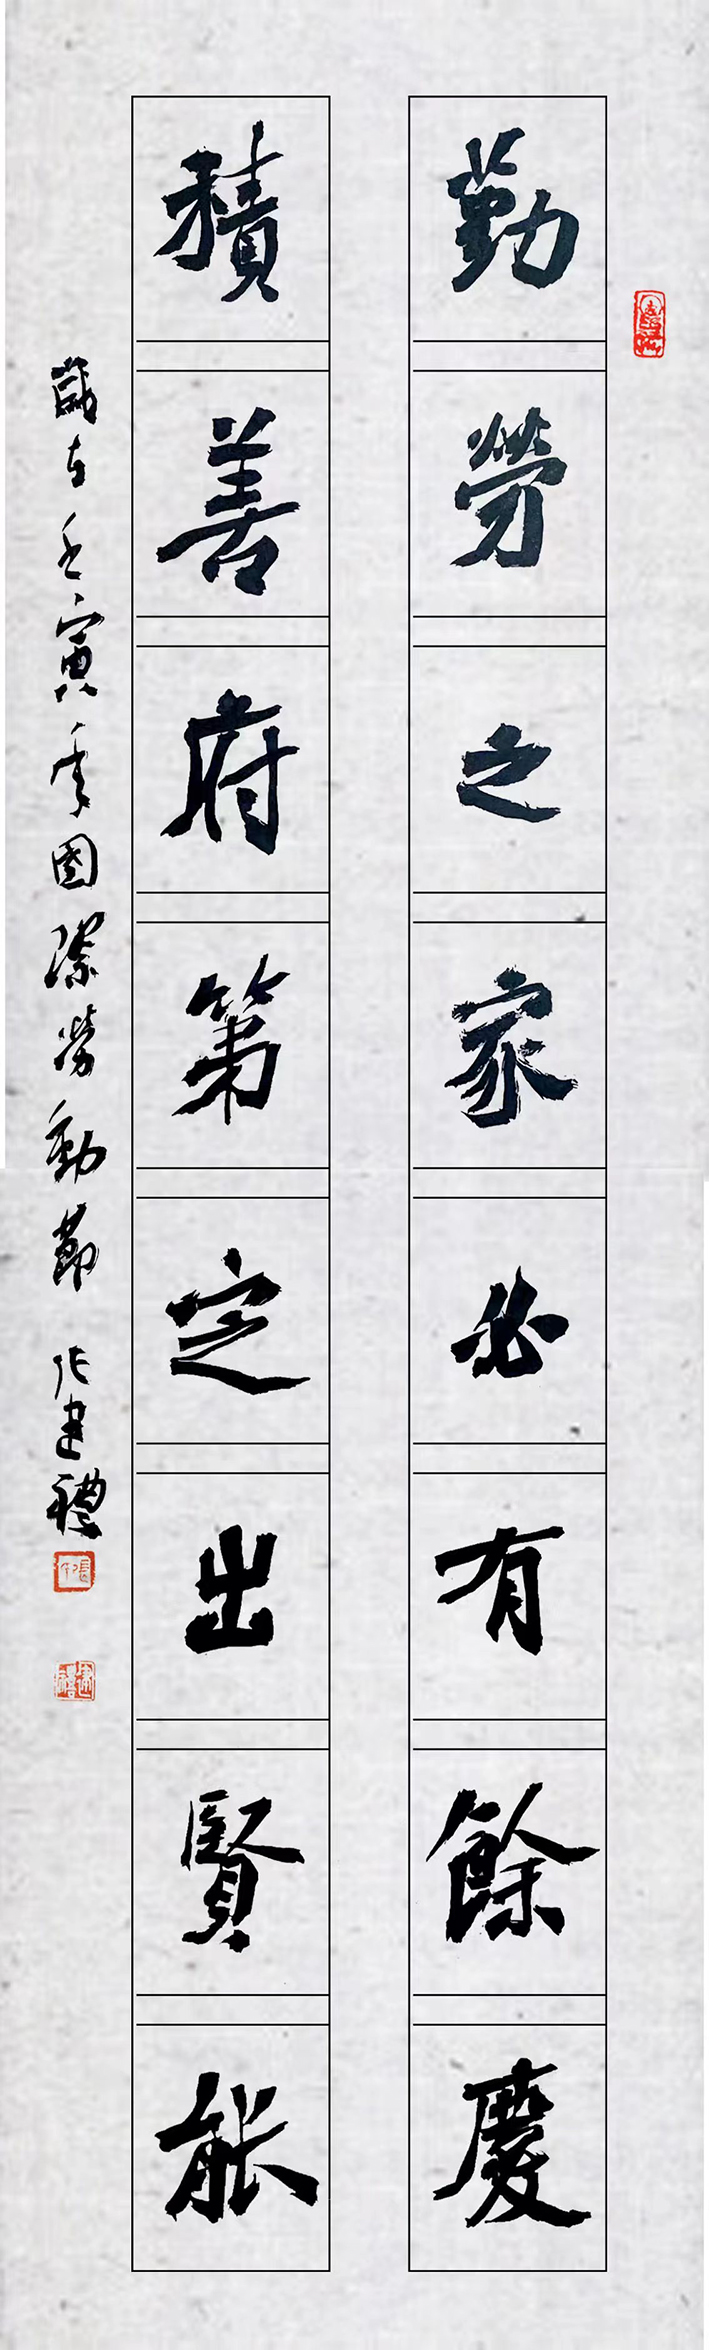 勤勞之家必有餘慶
積善府第定出賢能
歲在壬寅年國際勞動節 張建禮